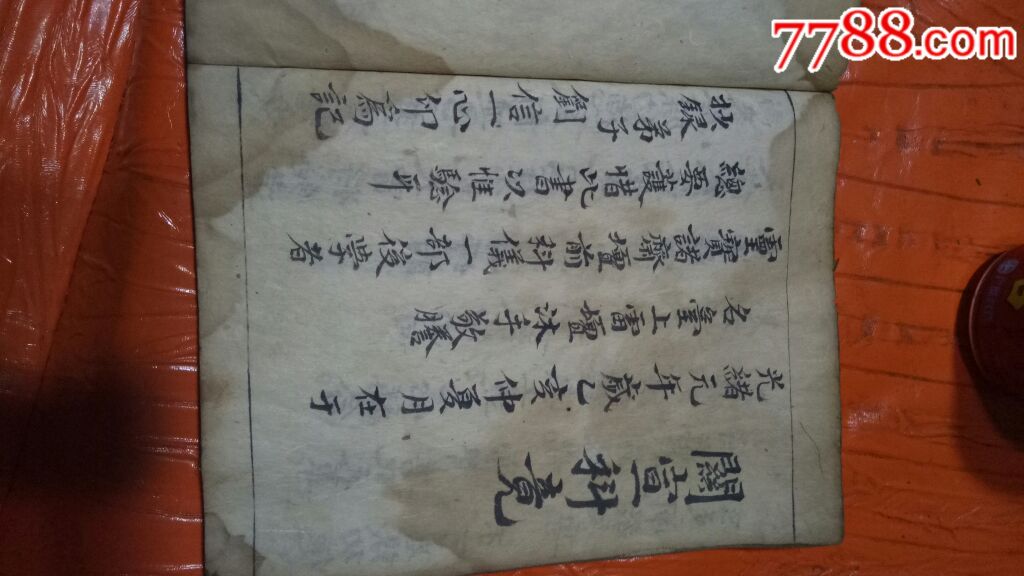 關宣科竟
光緒元年歲乙亥仲夏月在于
名上雷壇沐手敬謄
靈寶諸齋壇前科儀一部後學者
總要護惜此書以惟驗耳
抄錄弟子劉信一心叩寫記
7788.com